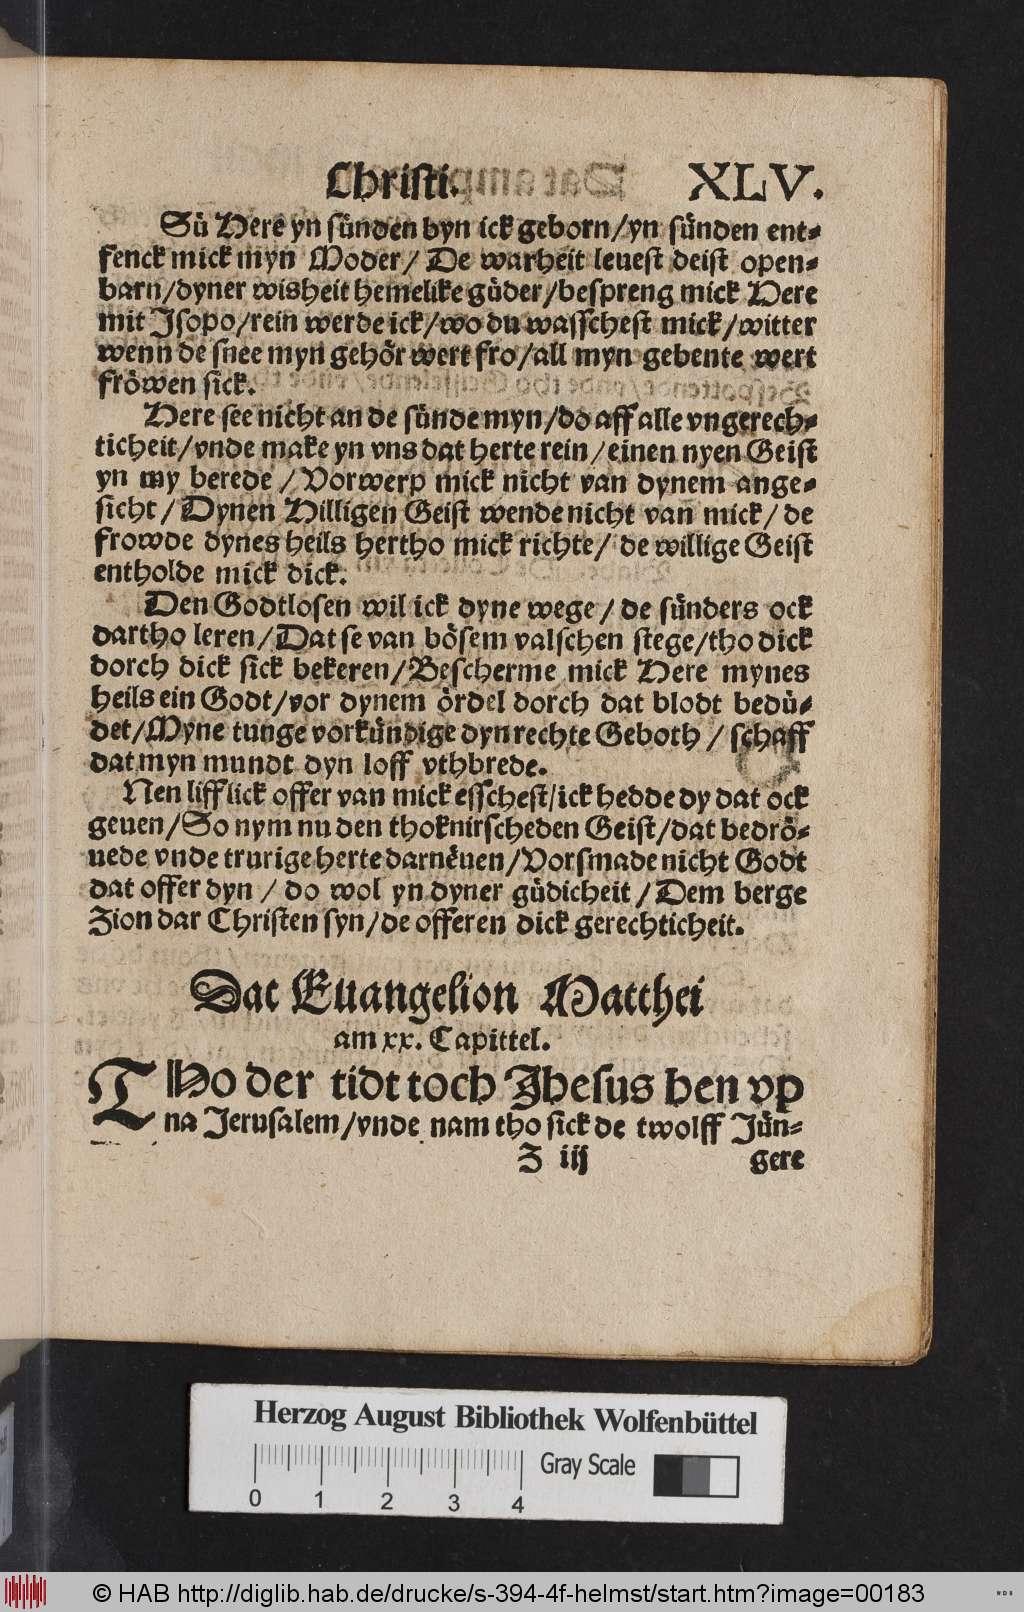 Christi. XLV.
Sü Here yn sünden byn ick geborn/yn sünden ent-
fenck mick myn Moder/ De warheit leuest deist open-
barn/dyner wisheit hemelike güder/bespreng mick Here
mit Jsopo/rein werde ick/wo du wasschest mick/witter
wenn de snee myn gehör wert fro/all myn gebente wert
fröwen sick.
Here see nicht an de sünde myn/do aff alle vngerech-
ticheit/vnde make yn vns dat herte rein/einen nyen Geist
yn my berede/Vorwerp mick nicht van dynem ange-
sicht/Dynen Hilligen Geist wende nicht van mick/de
frowde dynes heils hertho mick richte/ de willige Geist
entholde mick dick.
Den Godtlosen wil ick dyne wege/de sünders ock
dartho leren/Dat se van bösem valschen stege/tho dick
dorch dick sick bekeren/Bescherme mick Here mynes
heils ein Godt/vor dynem ördel dorch dat blodt bedü-
det/Myne tunge vorkündige dyn rechte Geboth/schaff
dat myn mundt dyn loff vthbrede.
Nen lifflick offer van mick esschest/ick hedde dy dat ock
geuen/So nym nu den thoknirscheden Geist/dat bedrö-
uede vnde trurige herte darnëuen/Vorsmade nicht Godt
dat offer dyn/do wol yn dyner güdicheit/Dem berge
Zion dar Christen syn/de offeren dick gerechticheit.
Dat Euangelion Matthei
am xx. Capittel.
THo der tidt toch Jhesus hen vp
na Jerusalem/vnde nam tho sick de twolff Jün-
Z iij gere
Herzog August Bibliothek Wolfenbüttel
Gray Scale
0 1 2 3 4
© HAB http://diglib.hab.de/drucke/s-394-4f-helmst/start.htm?image=00183